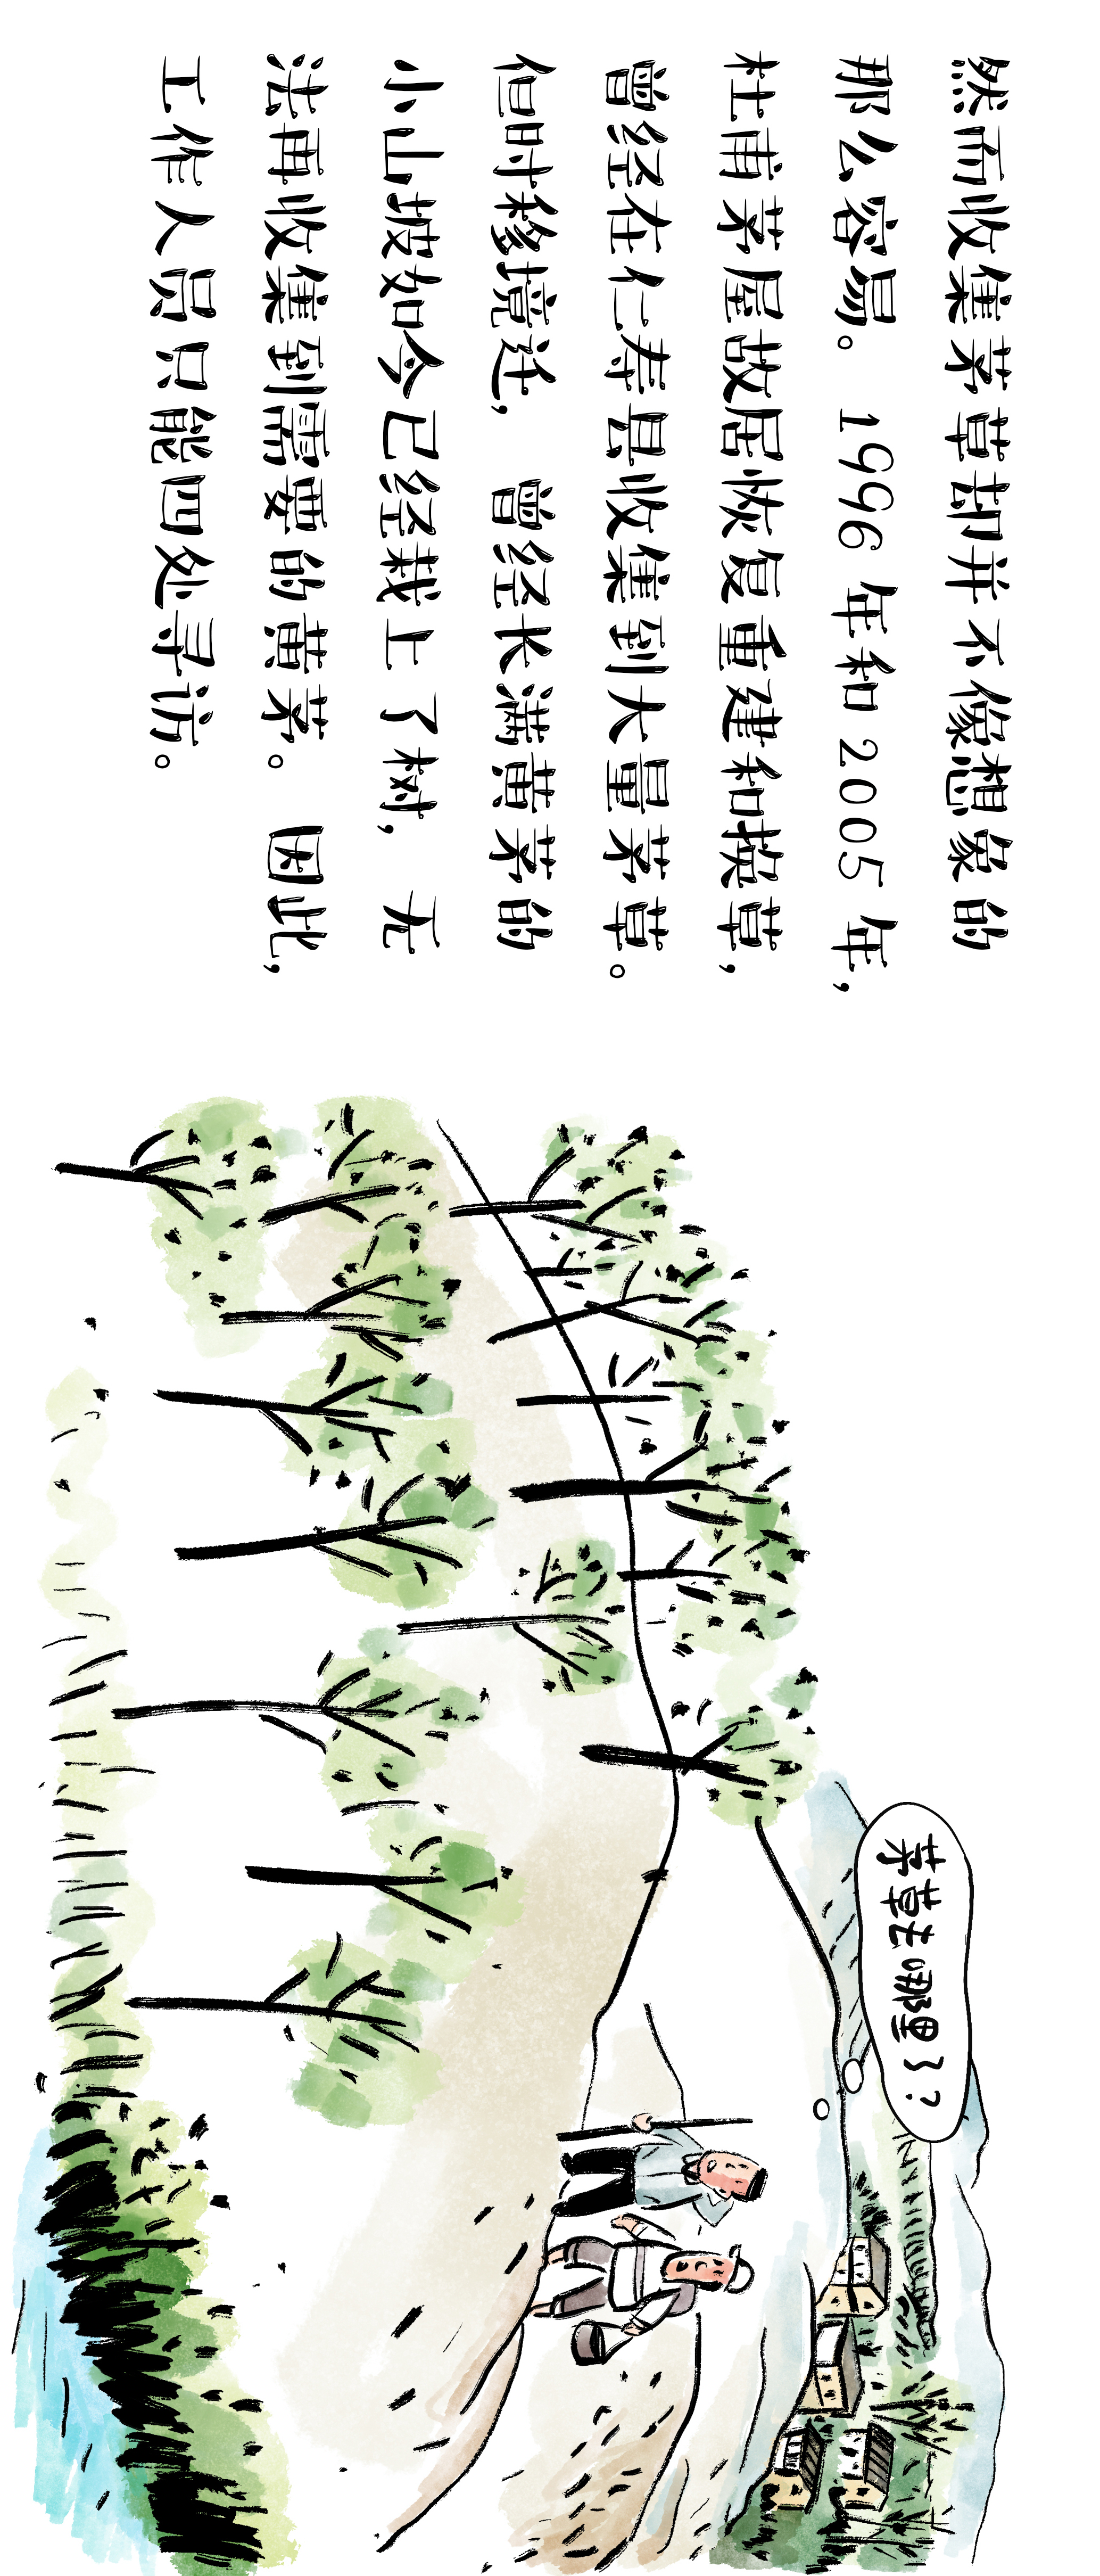 然而收集茅草却并不像想象的
那么容易。1996 年和 2005 年，
杜甫茅屋故居恢复重建和换草，
曾经在仁寿县收集到大量茅草。
但时移境迁，曾经长满黄茅的
小山坡如今已经栽上了树，无
法再收集到需要的黄茅。因此，
工作人员只能四处寻访。
茅草去哪里了？